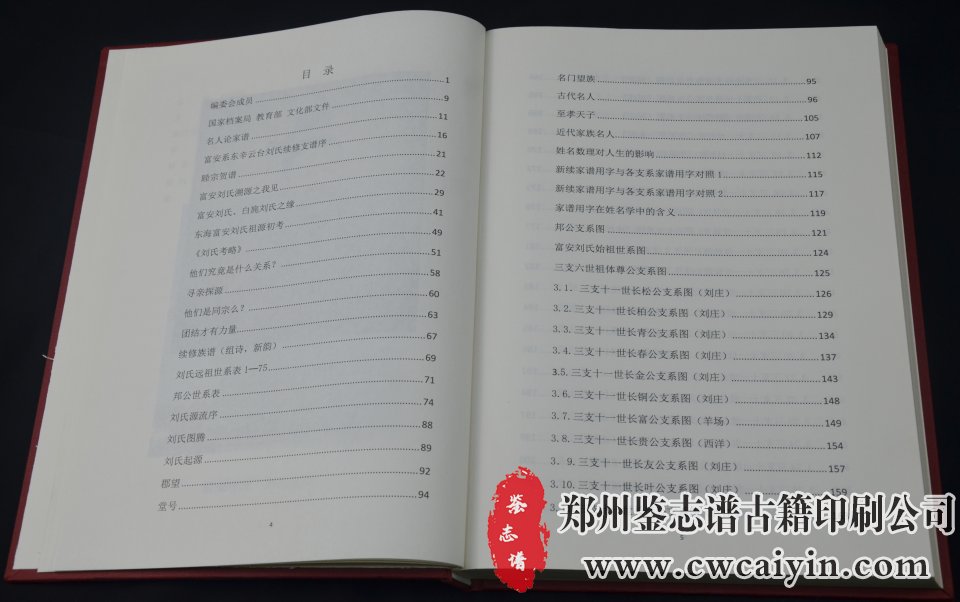 目 录
编委会成员 1
国家档案局 教育部 文化部文件 9
名人论家谱 11
富安系东辛云台刘氏续修支谱序 16
睦宗贺谱 21
富安刘氏溯源之我见 22
富安刘氏、白驹刘氏之缘 29
东海富安刘氏祖源初考 41
《刘氏考略》 49
他们究竟是什么关系? 51
寻亲探源 58
他们是同宗么? 60
团结才有力量 63
续修族谱(组诗,新韵) 67
刘氏远祖世系表1—75 69
邦公世系表 71
刘氏源流序 74
刘氏图腾 88
刘氏起源 89
郡望 92
堂号 94
4
名门望族 95
古代名人 96
至孝天子 105
近代家族名人 107
姓名数理对人生的影响 112
新续家谱用字与各支系家谱用字对照1 115
新续家谱用字与各支系家谱用字对照2 117
家谱用字在姓名学中的含义 119
邦公支系图 121
富安刘氏始祖世系图 124
三支六世祖体尊公支系图 125
3.1. 三支十一世长松公支系图(刘庄) 126
3.2. 三支十一世长柏公支系图(刘庄) 129
3.3. 三支十一世长青公支系图(刘庄) 134
3.4. 三支十一世长春公支系图(刘庄) 137
3.5. 三支十一世长金公支系图(刘庄) 143
3.6. 三支十一世长铜公支系图(刘庄) 148
3.7. 三支十一世长富公支系图(羊场) 149
3.8. 三支十一世长贵公支系图(西洋) 154
3. 9. 三支十一世长友公支系图(刘庄) 157
3.10. 三支十一世长叶公支系图(刘庄) 159
5
鉴志谱
郑州鉴志谱古籍印刷公司
www.cwcaiyin.com